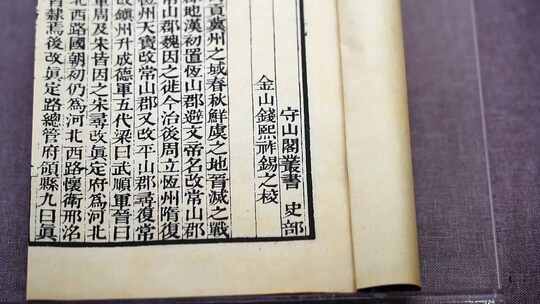 守山閣叢書 史部
金山錢熙祚錫之校
貢冀州之域春秋鮮虞之地晉滅之戰
地漢初置恆山郡避文帝名改常山郡
山郡魏因之徙今治後周立恆州隋復
州天寶改常山郡又改平山郡尋復常
改鎮州升成德軍五代梁曰武順軍晉曰
軍周及宋皆因之宋尋改眞定府爲河北
西路國朝初仍爲河北西路懷衛邢名
隸焉後改眞定路總管府領縣九曰眞